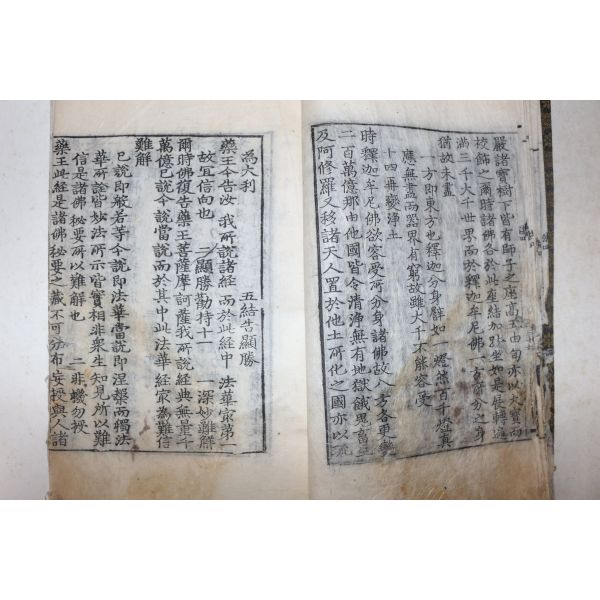 嚴諸寶樹下皆有師子之座高五由旬亦以大寶而
校飾之爾時諸佛各於此座結加趺坐如是展轉遍
滿三千大千世界而於釋迦牟尼佛一方所分之身
猶故未盡
一方即東方也釋迦分身譬如一燈然百千燈真
應無盡而器界有窮故雖大千不能容受
十四再變淨土
時釋迦牟尼佛欲容受所分身諸佛故八方各更變
二百萬億那由他國皆令清淨無有地獄餓鬼畜生
及阿修羅又移諸天人置於他土所化之國亦以
為大利
五結告顯勝
藥王今告汝 我所說諸經 而於此經中 法華冣第一
故宜信向也 二顯勝勸持十一 一深妙難解
爾時佛復告藥王菩薩摩訶薩我所說經典無量千
萬億已說今說當說而於其中此法華經冣為難信
難解
已說即般若等今說即法華當說即涅槃而獨法
華所詮皆妙法所示皆實相非衆生知見所以難
信是諸佛秘要所以難解也 二非機勿授
藥王此經是諸佛秘要之藏不可分布妄授與人諸